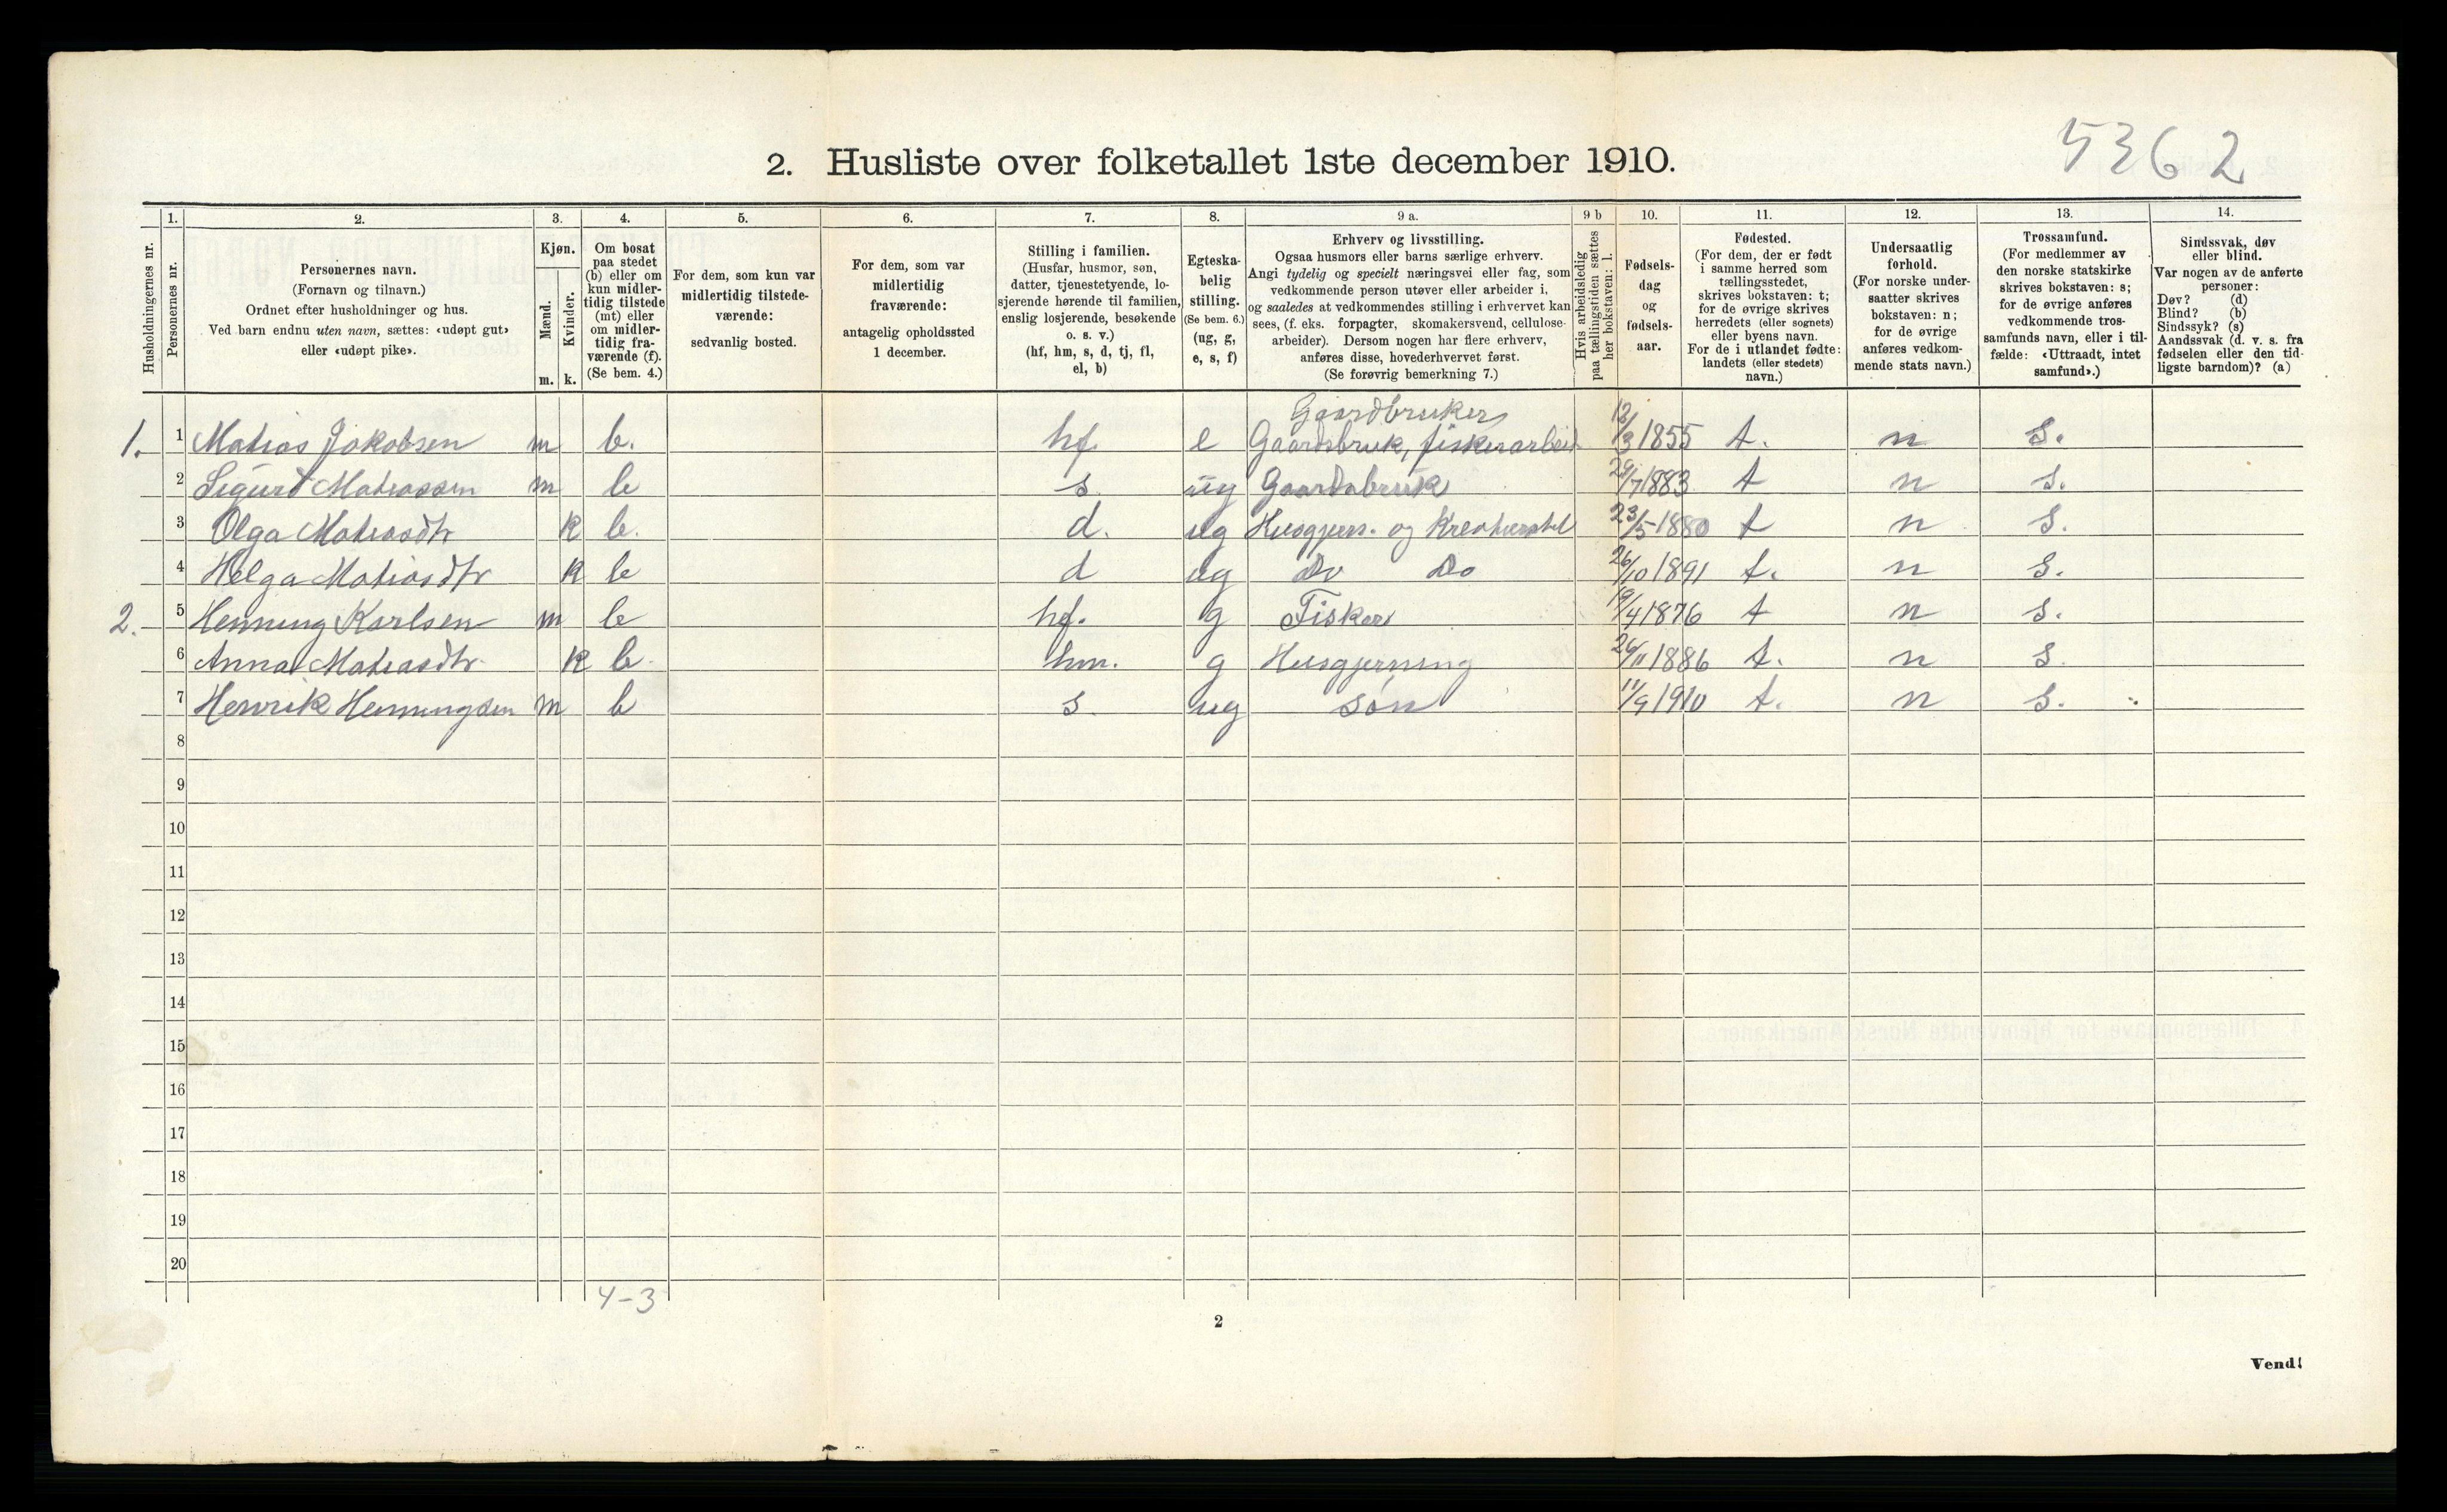 5362
2. Husliste over folketallet 1ste december 1910.
Husholdningernes nr.
1.
Personernes nr.
2.
Personernes navn.
(Fornavn og tilnavn.)
Ordnet efter husholdninger og hus.
Ved barn endnu uten navn, sættes: «udøpt gut»
eller «udøpt pike».
3.
Kjøn.
Mænd.
Kvinder.
m. k.
4.
Om bosat
paa stedet
(b) eller om
kun midler-
tidig tilstede
(mt) eller
om midler-
tidig fra-
værende (f).
(Se bem. 4.)
5.
For dem, som kun var
midlertidig tilstede-
værende:
sedvanlig bosted.
6.
For dem, som var
midlertidig
fraværende:
antagelig opholdssted
1 december.
7.
Stilling i familien.
(Husfar, husmor, søn,
datter, tjenestetyende, lo-
sjerende hørende til familien,
enslig losjerende, besøkende
o. s. v.)
(hf, hm, s, d, tj, fl,
el, b)
8.
Egteska-
belig
stilling.
(Se bem. 6.)
(ug, g,
e, s, f)
9 a.
Erhverv og livsstilling.
Ogsaa husmors eller barns særlige erhverv.
Angi tydelig og specielt næringsvei eller fag, som
vedkommende person utøver eller arbeider i,
og saaledes at vedkommendes stilling i erhvervet kan
sees, (f. eks. forpagter, skomakersvend, cellulose-
arbeider). Dersom nogen har flere erhverv,
anføres disse, hovederhvervet først.
(Se forøvrig bemerkning 7.)
9 b
Hvis arbeidsledig
paa tællingstiden sættes
her bokstaven: l.
10.
Fødsels-
dag
og
fødsels-
aar.
11.
Fødested.
(For dem, der er født
i samme herred som
tællingsstedet,
skrives bokstaven: t;
for de øvrige skrives
herredets (eller sognets)
eller byens navn.
For de i utlandet fødte:
landets (eller stedets)
navn.)
12.
Undersaatlig
forhold.
(For norske under-
saatter skrives
bokstaven: n;
for de øvrige
anføres vedkom-
mende stats navn.)
13.
Trossamfund.
(For medlemmer av
den norske statskirke
skrives bokstaven: s;
for de øvrige anføres
vedkommende tros-
samfunds navn, eller i til-
fælde: «Uttraadt, intet
samfund».)
14.
Sindssvak, døv
eller blind.
Var nogen av de anførte
personer:
Døv? (d)
Blind? (b)
Sindssyk? (s)
Aandssvak (d. v. s. fra
fødselen eller den tid-
ligste barndom)? (a)
Gaardbruker
1. 1 Matias Jakobsen m b. hf. e Gaardsbruk, fiskerarbeid 12/3 1855 t. n s.
2 Sigurd Matiassen m b s ug Gaardsbruk 29/7 1883 t n s.
3 Olga Matiasdtr k b. d. ug Husgjern. og Kreaturstel 23/5 1880 t n s.
4 Helga Matiasdtr k b d ug Do Do 26/10 1891 t. n s.
2. 5 Henning Karlsen m b hf. g Fisker 19/4 1876 t n s.
6 Anna Matiasdtr. k b. hm. g Husgjerning 26/11 1886 t. n s.
7 Henrik Henningsen m b s. ug søn 11/9 1910 t. n s.
8
9
10
11
12
13
14
15
16
17
18
19
20
4-3
2
Vend!